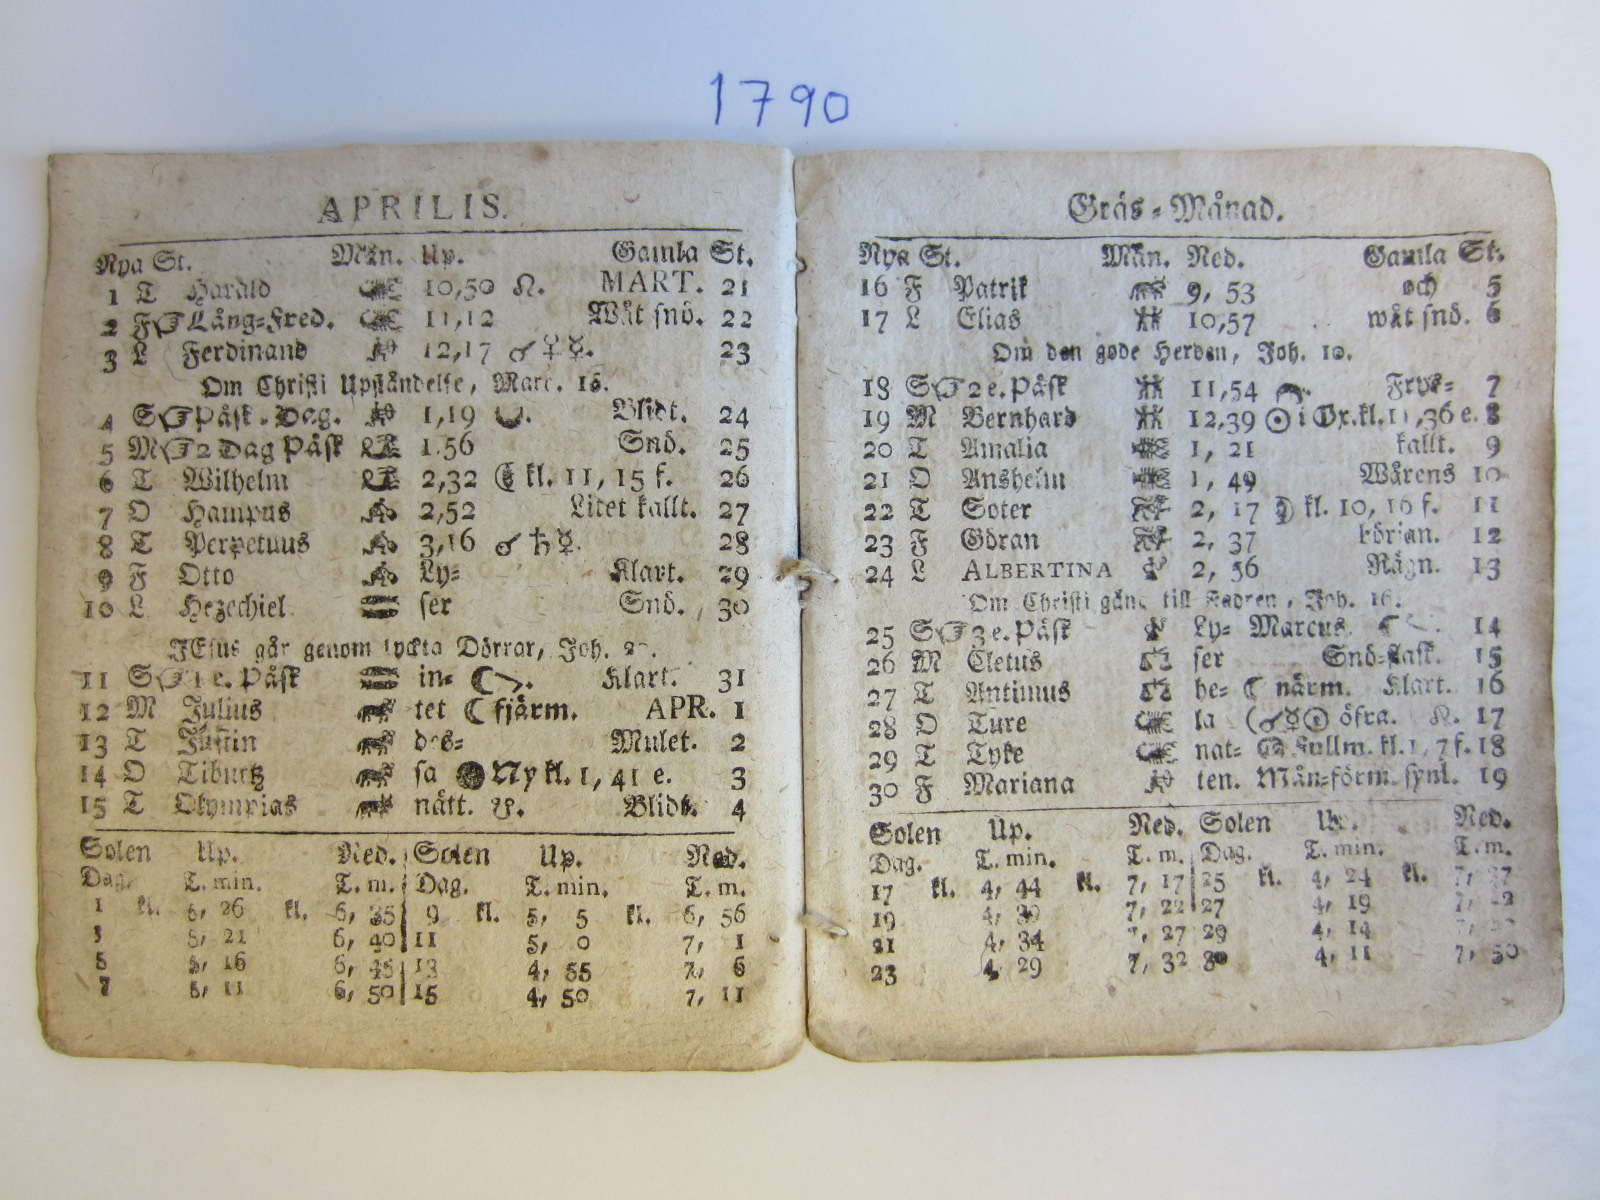 1790
APRILIS.
Nya St. Mån. Up. Gamla St.
1 T Harald 10,50 ☊. MART. 21
2 F Lång-Fred. 11,12 Wåt snö. 22
3 L Ferdinand 12,17 ☌ ♀ ☿. 23
Om Christi Upståndelse, Marc. 16.
4 S Påsk-Dag. 1,19 Blidt. 24
5 M 2 Dag Påsk 1.56 Snö. 25
6 T Wilhelm 2,32 ☾ kl. 11, 15 f. 26
7 O Hampus 2,52 Litet kallt. 27
8 T Perpetuus 3,16 ☌ ♄ ☿. 28
9 F Otto Ly- Klart. 29
10 L Hezechiel ser Snö. 30
JEsus går genom lyckta Dörrar, Joh.
11 S 1 e. Påsk in- ☾ Klart. 31
12 M Julius tet ☾ fjärm. APR. 1
13 T Justin des- Mulet. 2
14 O Tiburtz sa ● Ny kl. 1, 41 e. 3
15 T Olympias nått. ☋. Blidt. 4
Solen Up. Ned. Solen Up. Ned.
Dag. T. min. T. m. Dag. T. min. T. m.
1 kl. 5, 26 kl. 6, 35 9 kl. 5, 5 kl. 6, 56
3 5, 21 6, 40 11 5, 0 7, 1
5 5, 16 6, 45 13 4, 55 7, 6
7 5, 11 6, 50 15 4, 50 7, 11
Gräs-Månad.
Nya St. Mån. Ned. Gamla St.
16 F Patrik 9, 53 och 5
17 L Elias 10,57 wåt snö. 6
Om den gode Herden, Joh. 10.
18 S 2 e. Påsk 11,54 Frys- 7
19 M Bernhard 12,39 ☉ i Ox. kl. 11, 36 e. 8
20 T Amalia 1, 21 kallt. 9
21 O Anshelm 1, 49 Wårens 10
22 T Soter 2, 17 ☽ kl. 10, 16 f. 11
23 F Göran 2, 37 början. 12
24 L ALBERTINA 2, 56 Rägn. 13
Om Christi gång till Fadren, Joh. 16.
25 S 3 e. Påsk Ly- Marcus. 14
26 M Cletus ser Snö-slask. 15
27 T Antimus be- ☾ närm. Klart. 16
28 O Ture la ☌ ☿ ☉ öfra. ☊. 17
29 T Tyke nat- Fullm. kl. 1, 7 f. 18
30 F Mariana ten. Mån-förm. synl. 19
Solen Up. Ned. Solen Up. Ned.
Dag. T. min. T. m. Dag. T. min. T. m.
17 kl. 4, 44 kl. 7, 17 25 kl. 4, 24 kl. 7, 37
19 4, 39 7, 22 27 4, 19 7,
21 4, 34 7, 27 29 4, 14 7,
23 4, 29 7, 32 30 4, 11 7, 50